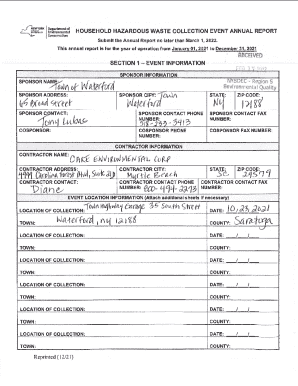 NEW YORK
Department of
Environmental
Conservation
HOUSEHOLD HAZARDOUS WASTE COLLECTION EVENT ANNUAL REPORT
Submit the Annual Report no later than March 1, 2022.
This annual report is for the year of operation from January 01, 2021 to December 31, 2021
RECEIVED
SECTION 1 – EVENT INFORMATION
NYSDEC - Region 5
Environmental Quality
SPONSOR INFORMATION
SPONSOR NAME: Town of Waterford
SPONSOR ADDRESS: 65 Broad Street
SPONSOR CITY: Town Waterford
STATE: NY
ZIP CODE: 12188
SPONSOR CONTACT:
SPONSOR CONTACT PHONE NUMBER: 518-233-3413
SPONSOR CONTACT FAX NUMBER:
COSPONSOR:
COSPONSOR PHONE NUMBER:
COSPONSOR FAX NUMBER:
CONTRACTOR INFORMATION
CONTRACTOR NAME: CARE ENVIRONMENTAL CORP
CONTRACTOR ADDRESS: 4999 Carolina Forest Blvd,
CONTRACTOR CITY: Myrtle Beach
STATE: SC
ZIP CODE: 29579
CONTRACTOR CONTACT: Diane
CONTRACTOR CONTACT PHONE NUMBER: 800-494-2273
CONTRACTOR CONTACT FAX NUMBER:
EVENT LOCATION INFORMATION (Attach additional sheets if necessary)
LOCATION OF COLLECTION: Town Highway Garage 35 South Street
DATE: 10/23/2021
TOWN: Waterford, NY 12188
COUNTY: Saratoga
LOCATION OF COLLECTION: DATE: / /
TOWN: COUNTY:
LOCATION OF COLLECTION: DATE: / /
TOWN: COUNTY:
LOCATION OF COLLECTION: DATE: / /
TOWN: COUNTY:
LOCATION OF COLLECTION: DATE: / /
TOWN: COUNTY:
Reprinted (12/21)